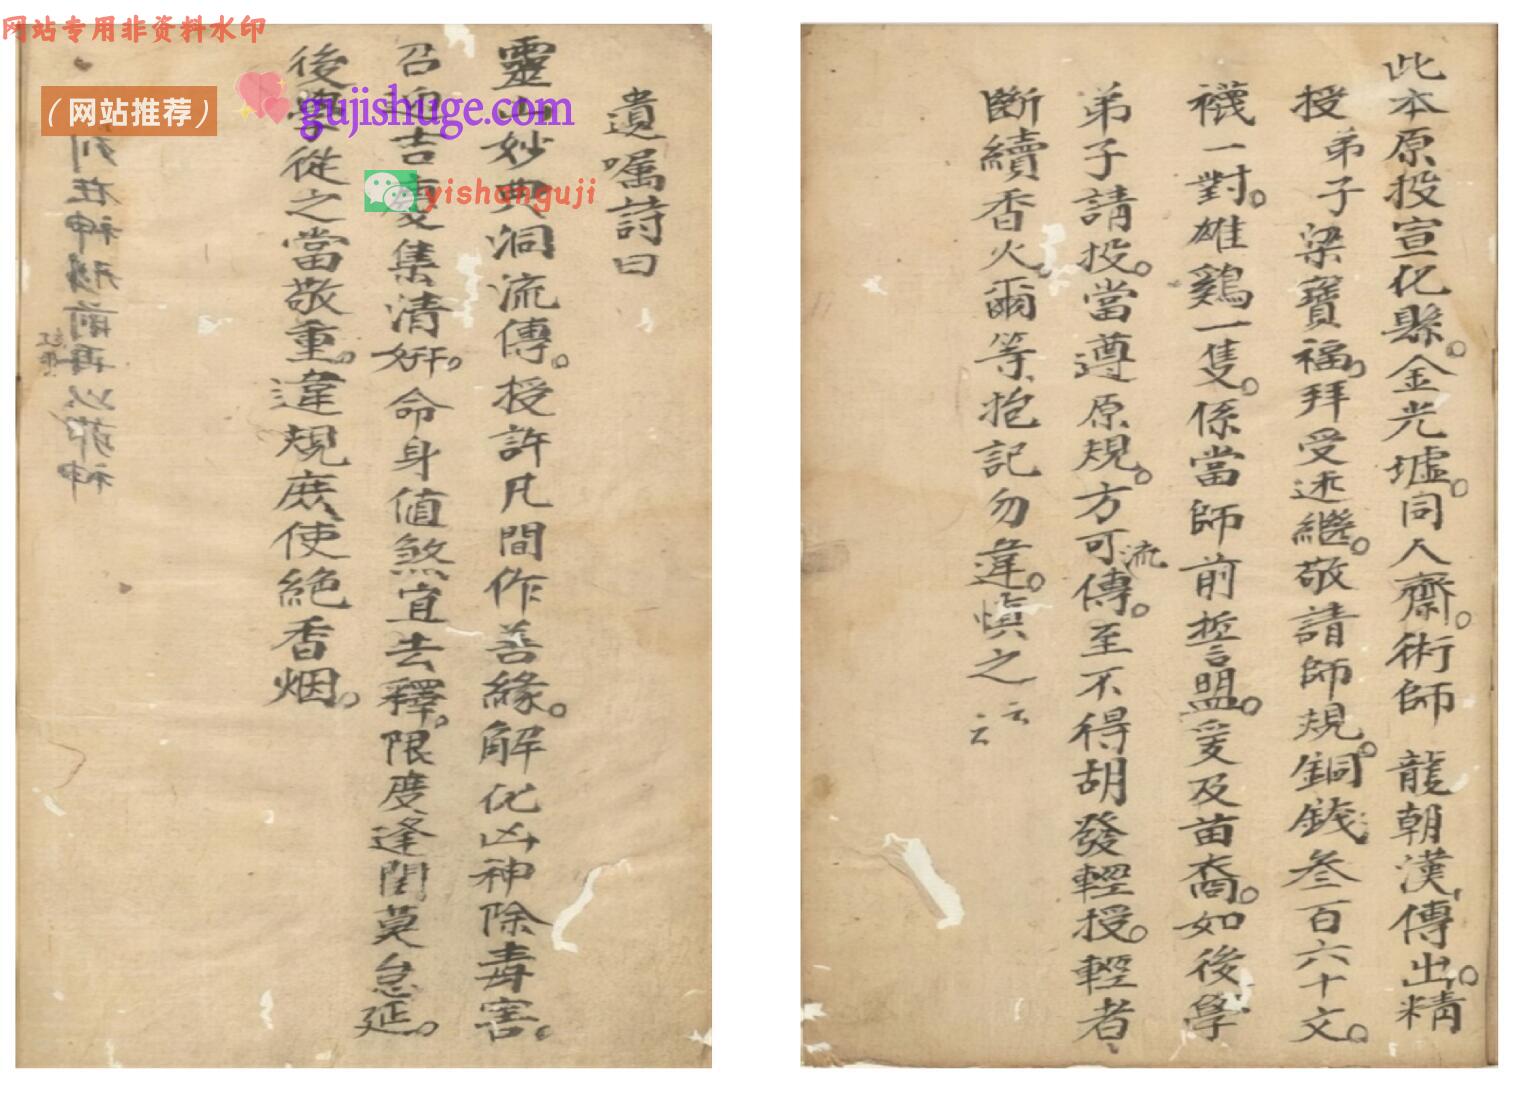 网站专用非资料水印
（网站推荐）
gujishuge.com
yishanguji
此本原投宣化縣。金光墟。同人齋。術師 龍朝漢傳出。精
授 弟子 梁寶福。拜受述繼。敬請師規。銅錢叁百六十文。
襪一對。雄鷄一隻。係當師前誓盟。爰及苗裔。如後學
弟子請投。當遵原規。方可流傳。至不得胡發輕授。輕者
斷續香火爾等抱記勿違。慎之 云云
遺嘱詩曰
靈山妙典洞流傳。授許凡間作善緣。解化凶神除毒害。
召迎吉慶集清妍。命身值煞宜去釋。限度逢閏莫怠延。
後學從之當敬重。違規庶使絕香烟。